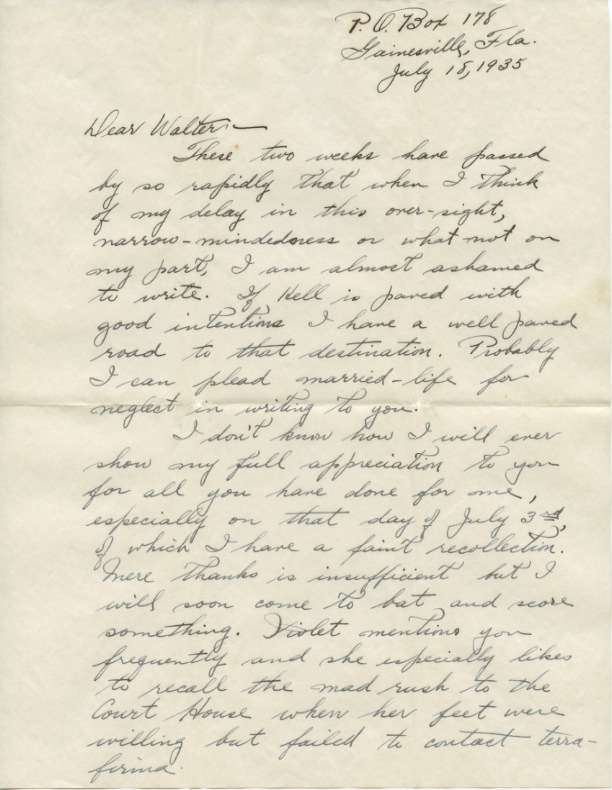 P. O. Box 178
Gainesville, Fla.
July 18, 1935
Dear Walter:—
These two weeks have passed
by so rapidly that when I think
of my delay in this over-sight,
narrow-mindedness or what not on
my part, I am almost ashamed
to write. If Hell is paved with
good intentions I have a well paved
road to that destination. Probably
I can plead married-life for
neglect in writing to you.
I don't know how I will ever
show my full appreciation to you
for all you have done for me,
especially on that day of July 3rd,
of which I have a faint recollection.
Mere thanks is insufficient but I
will soon come to bat and score
something. Violet mentions you
frequently and she especially likes
to recall the mad rush to the
Court House when her feet were
willing but failed to contact terra-
firma.